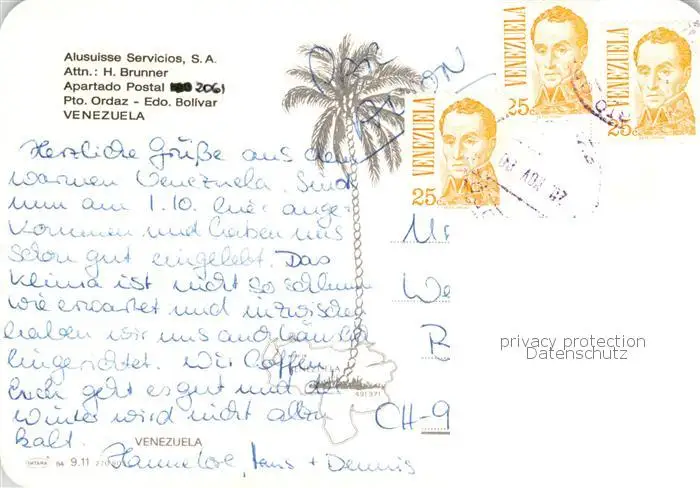 Alusuisse Servicios, S.A.
Attn.: H. Brunner
Apartado Postal 2061
Pto. Ordaz - Edo. Bolívar
VENEZUELA
Por
AVION
VENEZUELA
25c
VENEZUELA
25c
VENEZUELA
25c
Herzliche Grüße aus dem
warmen Venezuela. Sind
nun am 1.10. hier ange-
kommen und haben uns
schon gut eingelebt. Das
Klima ist nicht so schlimm
wie erwartet und inzwischen
haben wir uns auch häuslich
eingerichtet. Wir hoffen
Euch geht es gut und der
Winter wird nicht allzu
kalt.
Hannelore, Jens + Dennis
We
CH-9
privacy protection
Datenschutz
491371
VENEZUELA
84 9.11